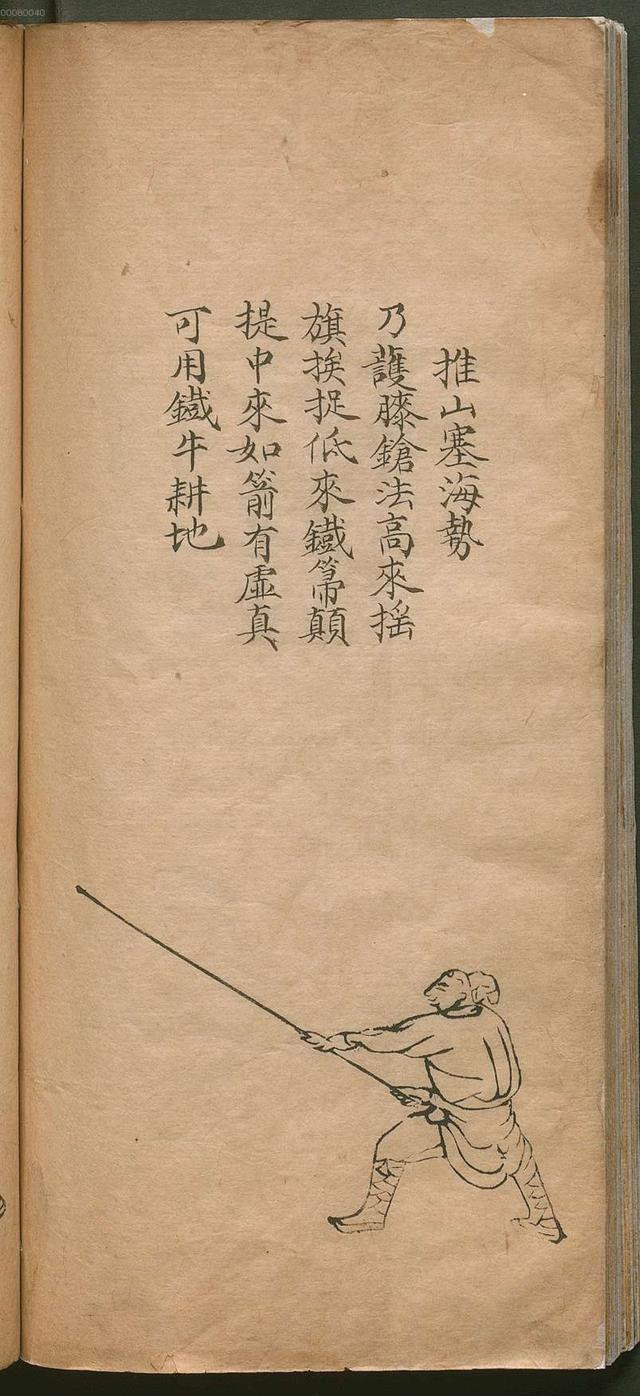 00080040
推山塞海勢
乃護膝鎗法高來搖
旗挨捉低來鐵箒顛
提中來如箭有虛真
可用鐵牛耕地